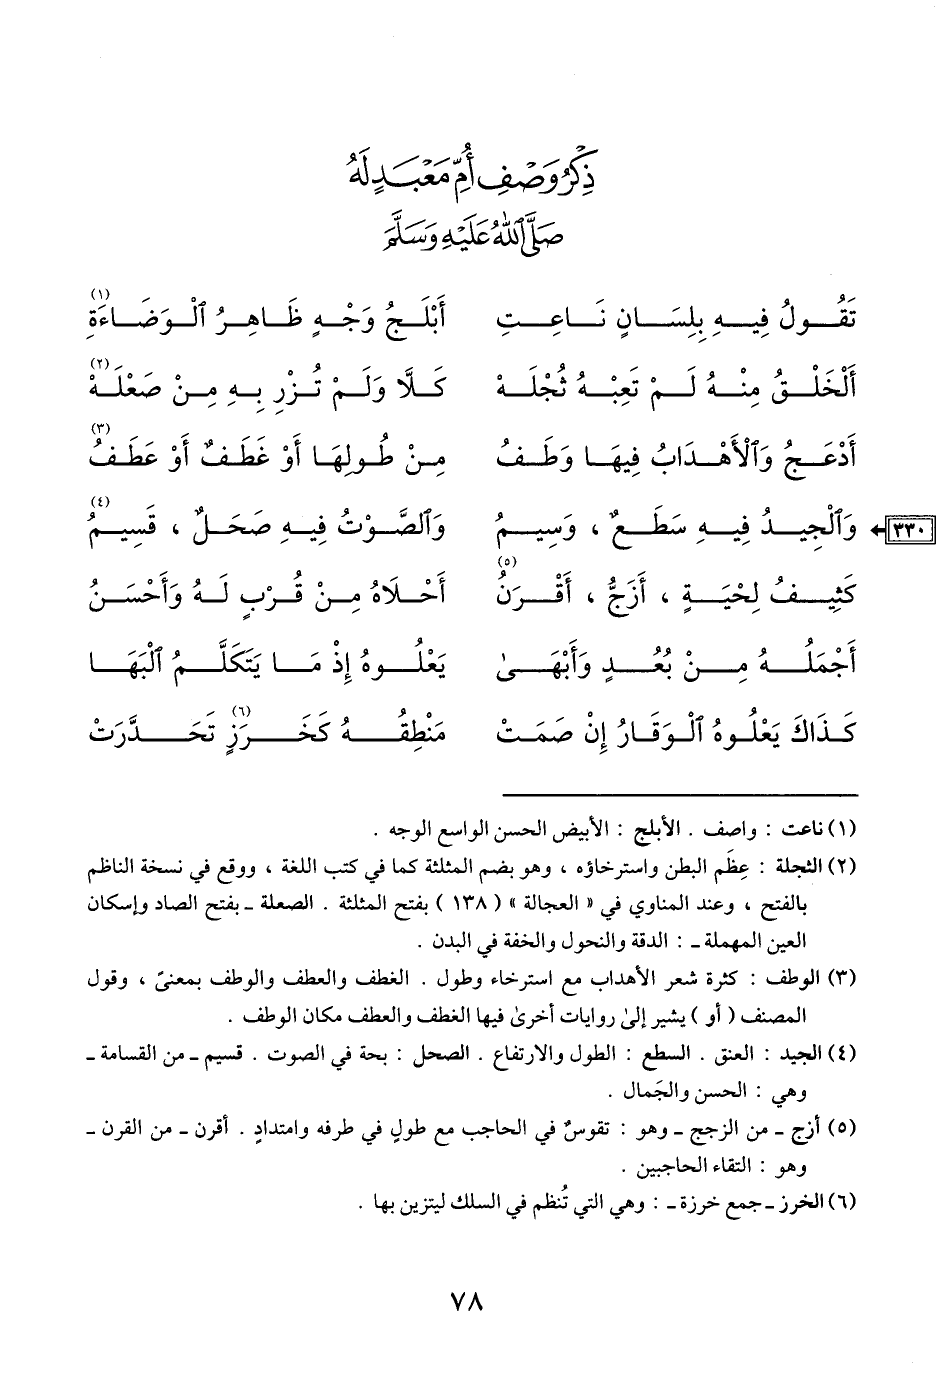 ذِكْرُ وَصْفِ أُمِّ مَعْبَدٍ لَهُ
صَلَّى ٱللهُ عَلَيْهِ وَسَلَّمَ
تَقُولُ فِيهِ بِلِسَانٍ نَاعِتِ أَبْلَجُ وَجْهٍ ظَاهِرُ ٱلْوَضَاءَةِ (١)
أَلْخَلْقُ مِنْهُ لَمْ تَعِبْهُ ثُجْلَهْ كَلَّا وَلَمْ تُزْرِ بِهِ مِنْ صَعْلَهْ (٢)
أَدْعَجُ وَٱلْأَهْدَابُ فِيهَا وَطَفُ مِنْ طُولِهَا أَوْ غَطَفٌ أَوْ عَطَفُ (٣)
٣٣٠ وَٱلْجِيدُ فِيهِ سَطَعٌ ، وَسِيمُ وَٱلصَّوْتُ فِيهِ صَحَلٌ ، قَسِيمُ (٤)
كَثِيفُ لِحْيَةٍ ، أَزَجُّ ، أَقْرَنُ (٥) أَحْلَاهُ مِنْ قُرْبٍ لَهُ وَأَحْسَنُ
أَجْمَلُهُ مِنْ بُعُدٍ وَأَبْهَىٰ يَعْلُوهُ إِذْ مَا يَتَكَلَّمُ ٱلْبَهَا
كَذَاكَ يَعْلُوهُ ٱلْوَقَارُ إِنْ صَمَتْ مَنْطِقُهُ كَخَرَزٍ (٦) تَحَدَّرَتْ
(١) ناعت : واصف . الأبلج : الأبيض الحسن الواسع الوجه .
(٢) الثجلة : عِظَم البطن واسترخاؤه ، وهو بضم المثلثة كما في كتب اللغة ، ووقع في نسخة الناظم
بالفتح ، وعند المناوي في « العجالة » ( ١٣٨ ) بفتح المثلثة . الصعلة ـ بفتح الصاد وإسكان
العين المهملة ـ : الدقة والنحول والخفة في البدن .
(٣) الوطف : كثرة شعر الأهداب مع استرخاء وطول . الغطف والعطف والوطف بمعنىً ، وقول
المصنف ( أو ) يشير إلىٰ روايات أخرىٰ فيها الغطف والعطف مكان الوطف .
(٤) الجيد : العنق . السطع : الطول والارتفاع . الصحل : بحة في الصوت . قسيم ـ من القسامة ـ
وهي : الحسن والجَمال .
(٥) أزج ـ من الزجج ـ وهو : تقوسٌ في الحاجب مع طولٍ في طرفه وامتدادٍ . أقرن ـ من القرن ـ
وهو : التقاء الحاجبين .
(٦) الخرز ـ جمع خرزة ـ : وهي التي تُنظم في السلك ليتزين بها .
٧٨